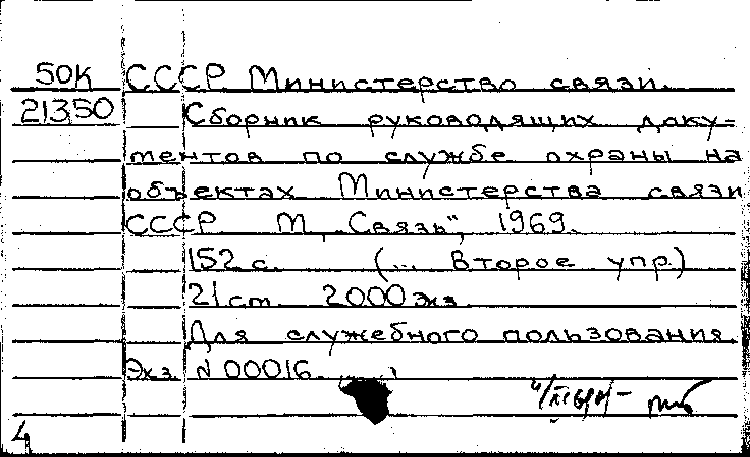 50К СССР. Министерство связи.
21350 Сборник руководящих доку-
ментов по службе охраны на
объектах Министерства связи
СССР М., "Связь", 1969.
152 с. (... Второе упр.)
21 см. 2000 экз.
Для служебного пользования.
Экз. N 00016.
4